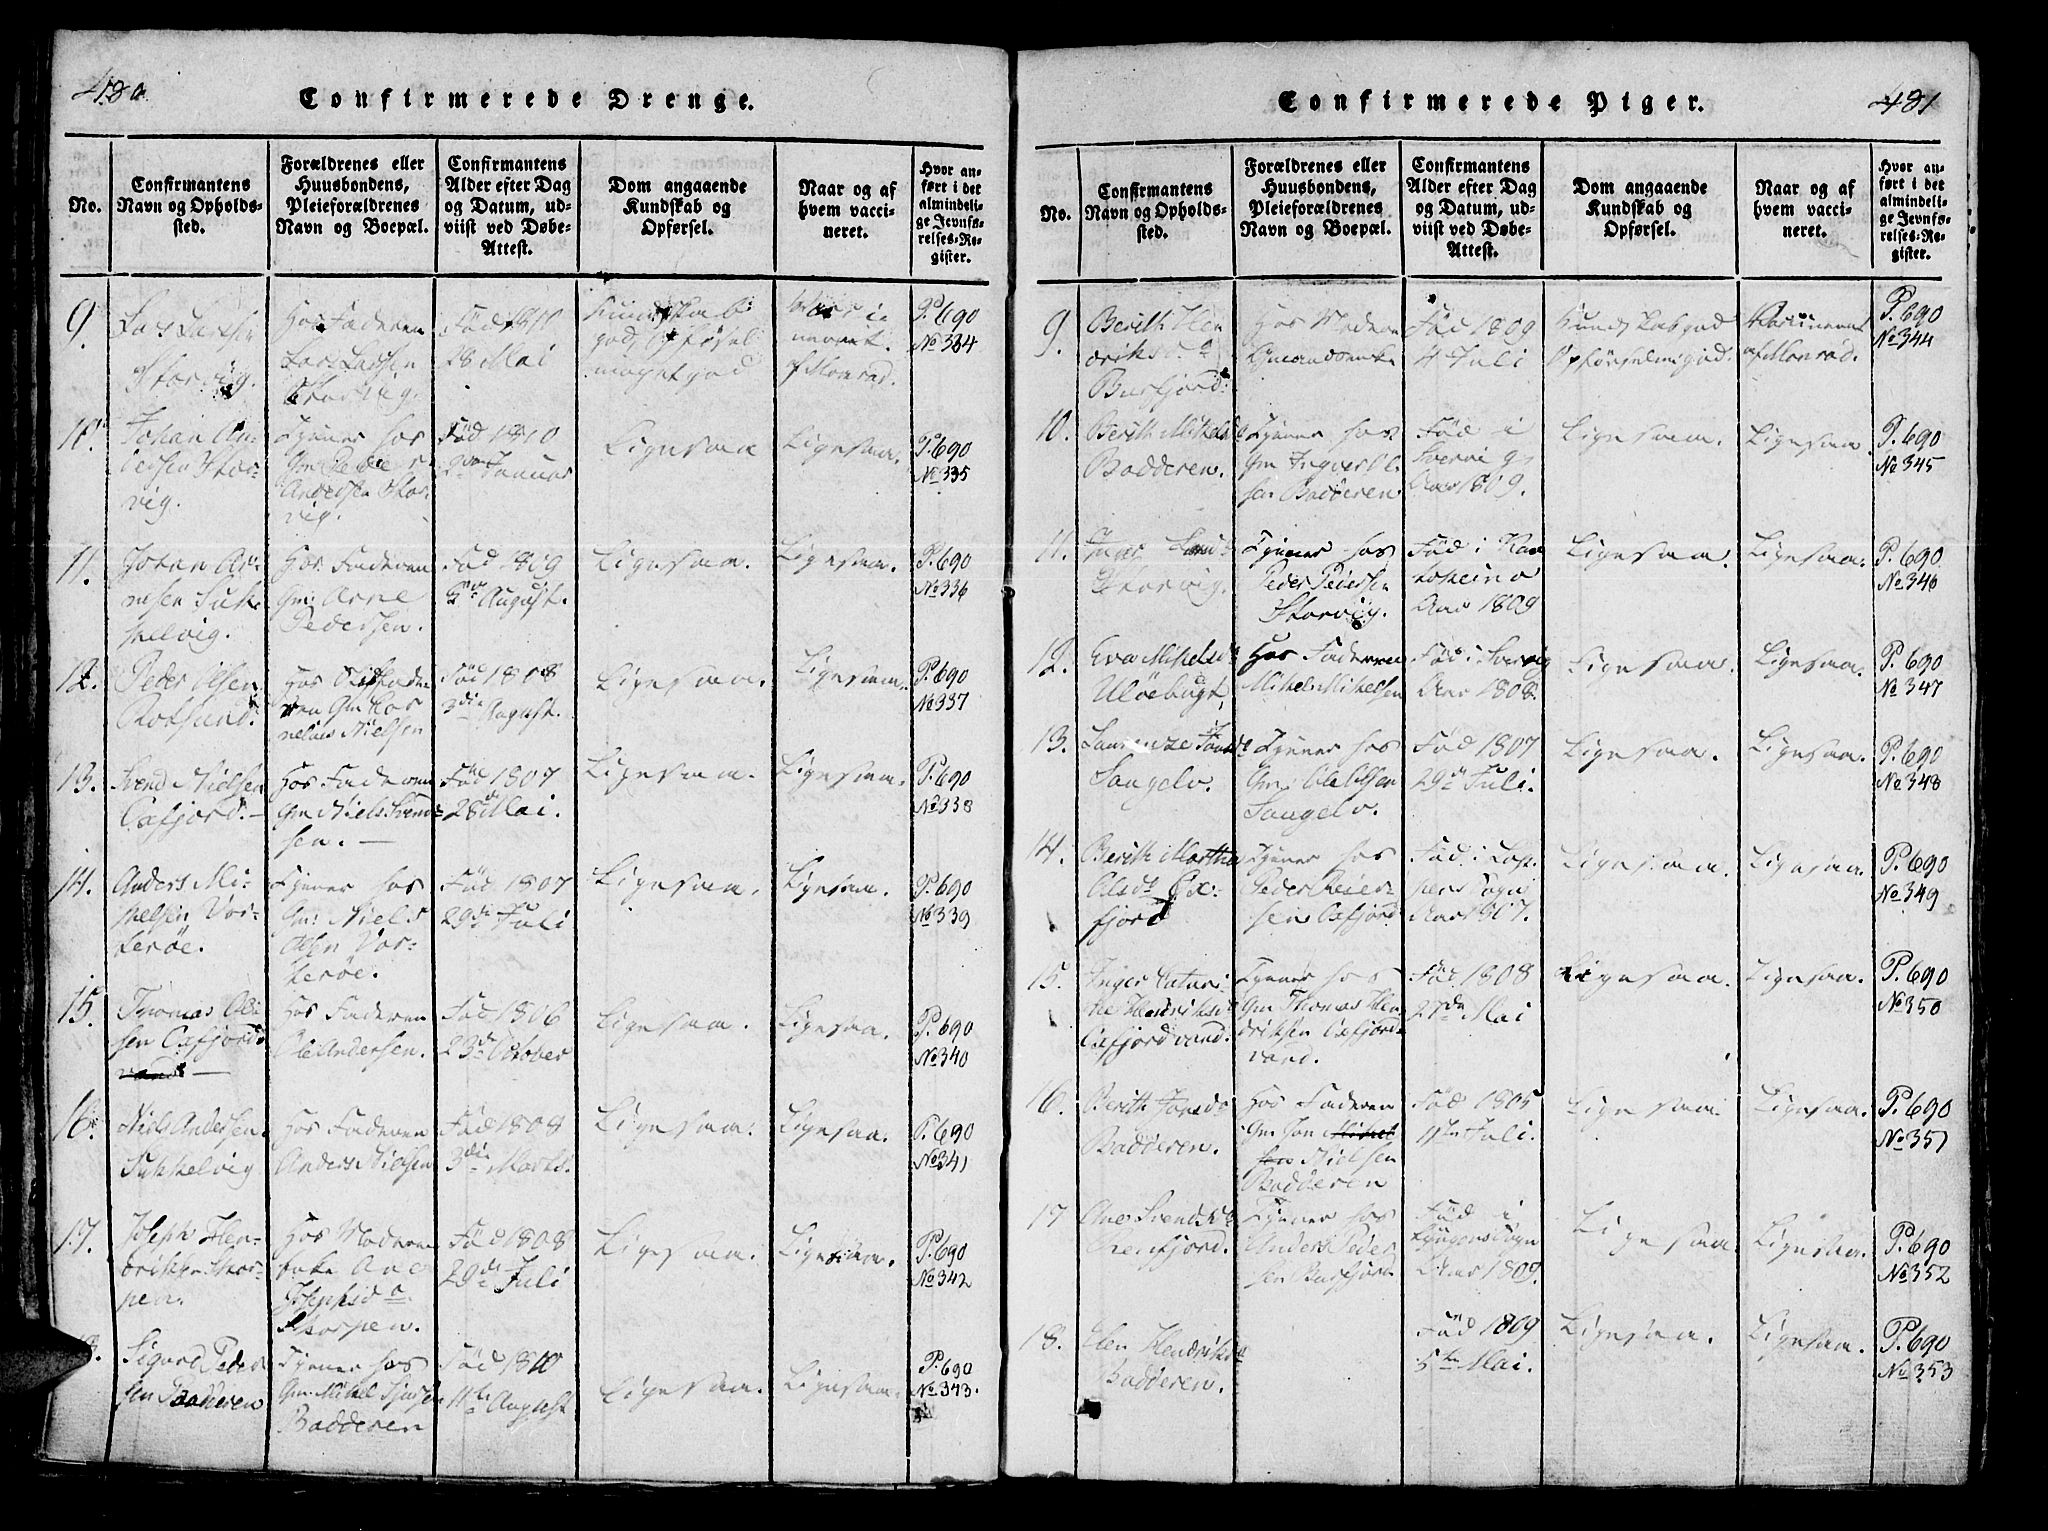 480
Confirmerede Drenge.
No.
Confirmantens
Navn og Opholds-
sted.
Forældrenes eller
Huusbondens,
Pleieforældrenes
Navn og Boepæl.
Confirmantens
Alder efter Dag
og Datum, ud-
viist ved Døbe-
Attest.
Dom angaaende
Kundskab og
Opførsel.
Naar og af
hvem vacci-
neret.
Hvor an-
ført i det
almindeli-
ge Jevnfø-
relses-Re-
gister.
9.
Lars Larsen
Storvig.
Hos Faderen
Lars Larsen
Storvig.
Fød 1810
28 Mai
Kundskab
god, Opførsel
meget god
Vacci
neret
af Monrad.
P. 690
No 334
10.
Johan An-
dersen Stor-
vig.
Tjener hos
Gm Peder
Andersen Stor-
vig.
Fød 1810
2den Januar
Ligesaa
Ligesaa.
P. 690
No 335
11.
Johan Ar-
nesen Suk-
kelvig.
Hos Faderen
Gm: Arne
Pedersen.
Fød 1809
August.
Ligesaa.
Ligesaa.
P. 690
No 336
12.
Peder Olsen
Rotsund.
Hos Stiffade
ren Gm Kor
nelius Nielsen
Fød 1808
3die August.
Ligesaa.
Ligesaa.
P. 690
No 337
13.
Svend Nielsen
Oxfjord. —
Hos Faderen
Gm Niels Svend-
sen. —
Fød 1807
28de Mai.
Ligesaa.
Ligesaa.
P. 690
No 338
14.
Anders Mi-
kelsen Vor-
terøe.
Tjener hos
Gm: Niels
Olsen Vor-
terøe.
Fød 1807
29de Juli
Ligesaa.
Ligesaa.
P. 690
No 339
15.
Thomas Ole
sen Oxfjord-
vand. —
Hos Faderen
Ole Andersen.
Fød 1806
23de October
Ligesaa.
Ligesaa.
P. 690
No 340
16.
Niels Andersen
Sukkelvig
Hos Faderen
Anders Nielsen
Fød 1808
3die Marts.
Ligesaa.
Ligesaa.
P. 690
No 341
17.
Joseph Hen-
driksen Skor-
pen.
Hos Moderen
Enke Ane
Josephsda
Skorpen.
Fød 1808
29de Juli
Ligesaa.
Ligesaa.
P. 690
No 342
18.
Sigurd Peder
sen Badderen
Tjener hos
Gm: Mikel
Badderen
Fød 1810
11te August
Ligesaa.
Ligesaa.
P. 690
No 343.
481
Confirmerede Piger.
No.
Confirmantens
Navn og Opholds-
sted.
Forældrenes eller
Huusbondens,
Pleieforældrenes
Navn og Boepæl.
Confirmantens
Alder efter Dag
og Datum, ud-
viist ved Døbe-
Attest.
Dom angaaende
Kundskab og
Opførsel.
Naar og af
hvem vacci-
neret.
Hvor an-
ført i det
almindeli-
ge Jevnfø-
relses-Re-
gister.
9.
Berith Hen
driksda
Burfjord.
Hos Moderen
Gmandsenke
Fød 1809
4 Juli
Kundskab god
Opførsel m: god.
Vaccineret
af Monrad.
P. 690
No 344
10.
Berith Mikelsda
Badderen.
Tjener hos
Gm Ingver Ol
sen Badderen
Fød i
Sverrig
Aar 1809.
Ligesaa.
Ligesaa.
P. 690
No 345
11.
Storvig.
Tjener hos
Peder Pedersen
Storvig.
Fød i Kau
tokeino
Aar 1809
Ligesaa.
Ligesaa.
P. 690
No 346
12.
Eva Mikelsda
Uløebugt,
Hos Faderen
Mikel Mikelsen
Fød i Sverrig
Aar 1808.
Ligesaa.
Ligesaa.
P. 690
No 347
13.
Laurenze
Sangelv.
Tjener hos
Gm: Ole Olsen
Sangelv.
Fød 1807
29de Juli.
Ligesaa.
Ligesaa.
P. 690
No 348
14.
Berith Martha
Olsda Ox-
fjord
Tjener hos
Peder Reier-
sen Oxfjord
Fød i Lop-
pens Sogn
Aar 1807.
Ligesaa.
Ligesaa.
P. 690
No 349
15.
Inger Catari-
ne Hendriksda
Oxfjordvand.
Tjener hos
Gm Thomas Hen
driksen Oxfjord-
vand.
Fød 1808
27de Mai
Ligesaa.
Ligesaa.
P. 690
No 350
16.
Berith Jonsda
Badderen.
Hos Faderen
Gm Jon Mikel
sen Nielsen
Badderen
Fød 1805
11te Juli.
Ligesaa.
Ligesaa.
P. 690
No 351
17
Ane Svendsda
Tjener hos
Anders Peder
sen Burfjord.
Fød i
Lyngens Sogn
Aar 1809.
Ligesaa.
Ligesaa.
P. 690
No 352
18.
Elen Hendriksda
Badderen.
Fød 1809
5te Mai.
Ligesaa.
Ligesaa.
P. 690
No 353